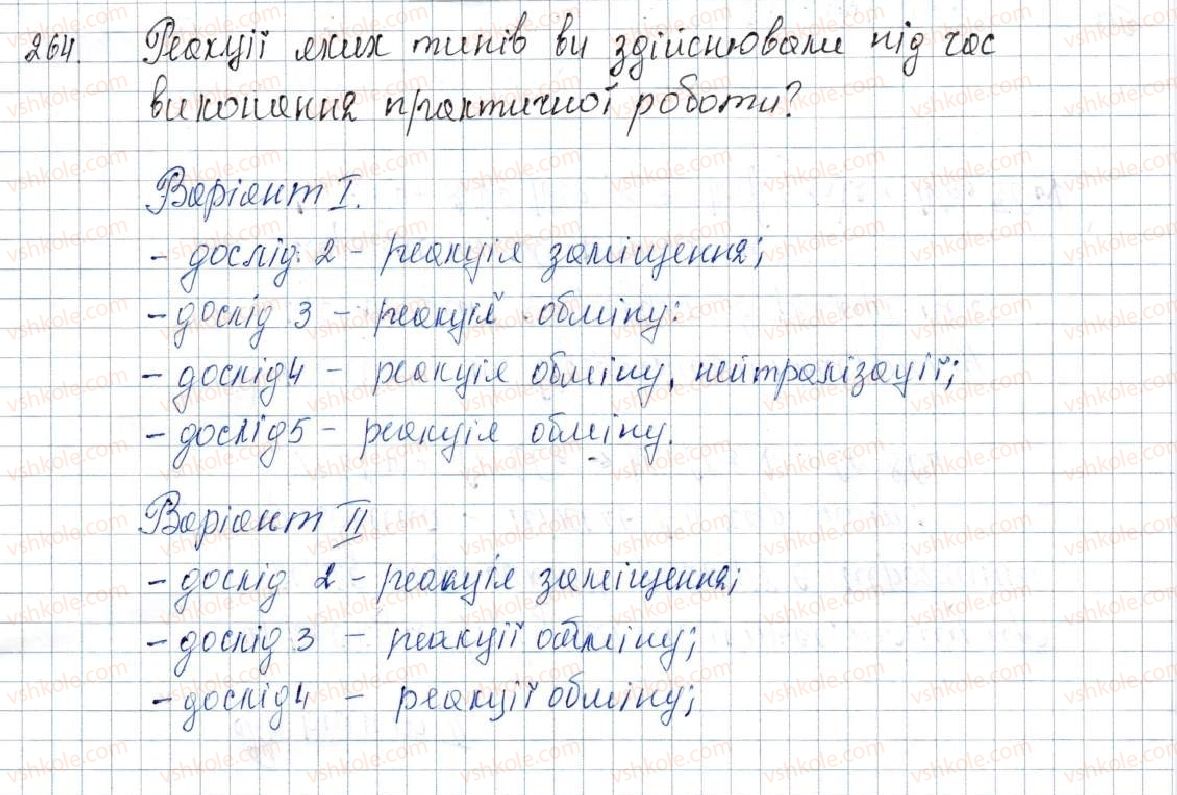 264. Реакції яких типів ви здійснювали під час
виконання практичної роботи?
Варіант I.
- дослід 2 - реакція заміщення;
- дослід 3 - реакції обміну:
- дослід 4 - реакція обміну, нейтралізації;
- дослід 5 - реакція обміну.
Варіант II
- дослід 2 - реакція заміщення;
- дослід 3 - реакції обміну;
- дослід 4 - реакції обміну;
vshkole.com